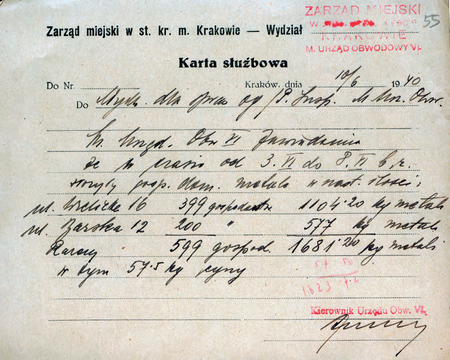 ZARZĄD MIEJSKI
KRAKOWIE
M. URZĄD OBWODOWY VI
55
Zarząd miejski w st. kr. m. Krakowie — Wydział
Karta służbowa
Do Nr. Kraków, dnia 10/6 1940
Do Wydz. dla spraw og
M. Urzęd. Obw VI zawiadamia
że w czasie od 3.VI do 8.VI b.r.
gosp. dom. metali w nast. ilości:
ul. Wielicka 16 399 gospodarstw 1104·20 kg metali
ul. Zarzka 12 200 " 577 kg metali
Razem 599 gospod. 1681·20 kg metali
w tym 57·5 kg cyny
Kierownik Urzędu Obw. VI.